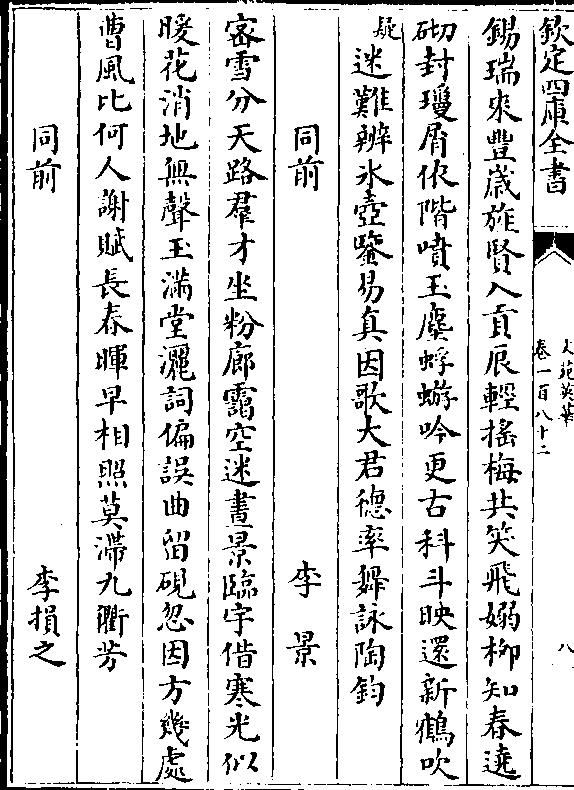 欽定四庫全書
文苑英華
卷一百八十二
八
錫瑞來豐歳旌賢入貢辰輕揺梅共笑飛嫋栁知春遶
砌封瓊屑依階噴玉塵蜉蝣吟更古科斗映還新鶴吹
疑迷難辨氷壺鑒易真因歌大君徳率舞詠陶鈞
同前 李景
密雪分天路羣才坐粉廊靄空迷晝景臨宇借寒光似
暖花消地無聲玉滿堂灑詞偏誤曲留硯忽因方幾處
曹風比何人謝賦長春暉早相照莫滯九衢芳
同前 李損之